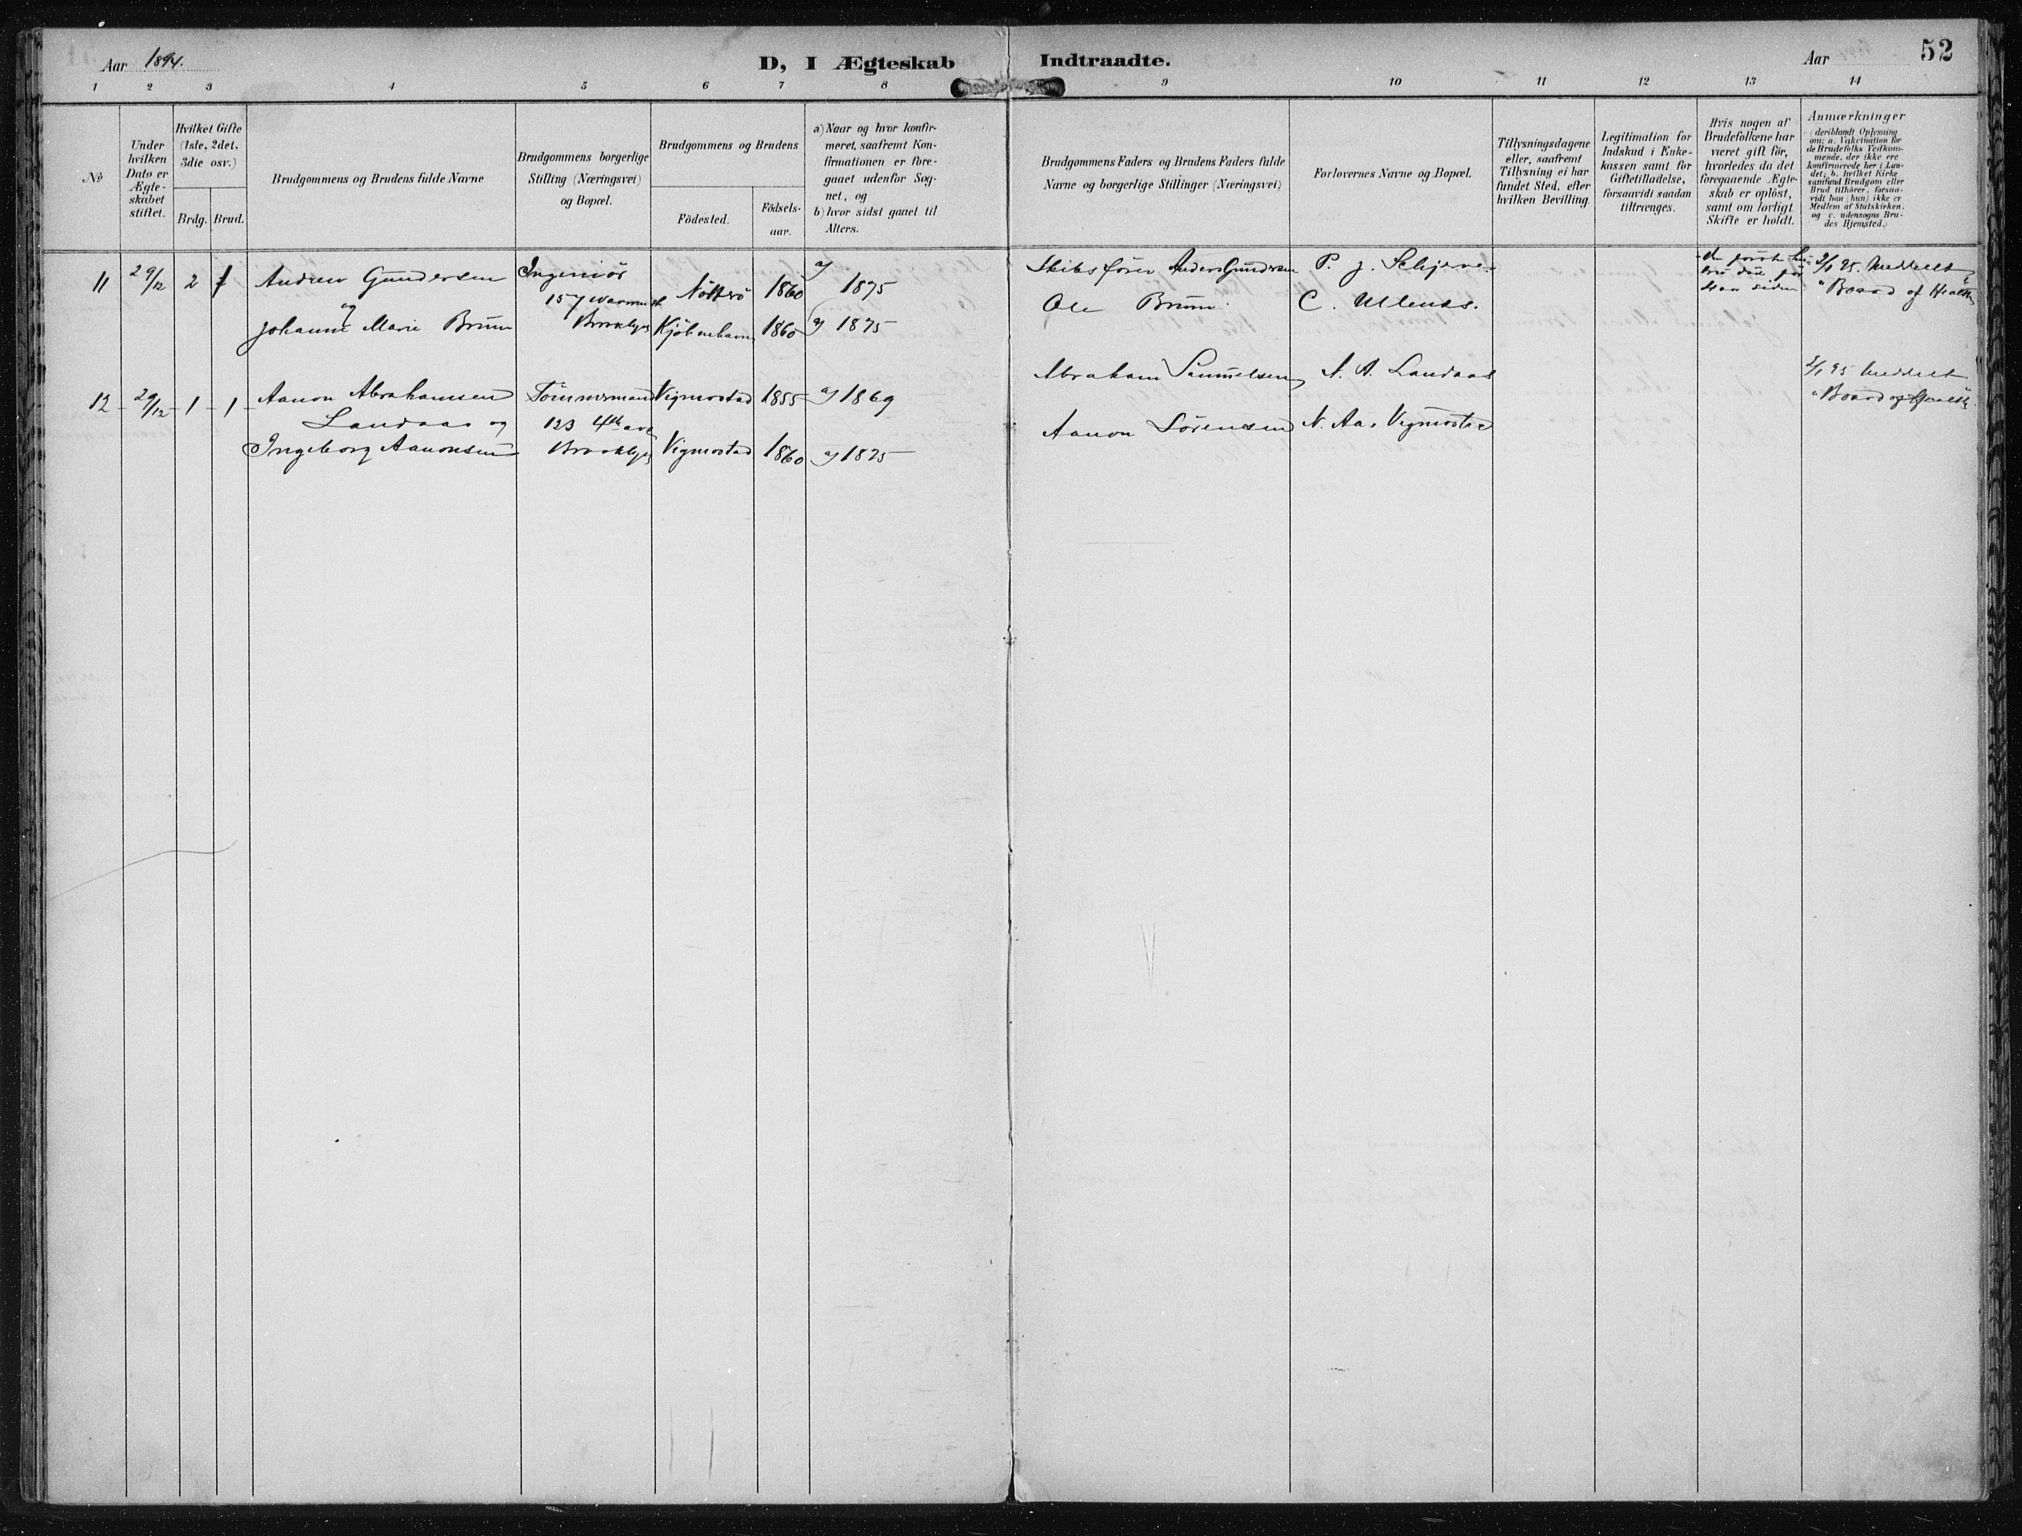 Aar 1894.
D, I Ægteskab Indtraadte.
Aar
52
1 2 3 4 5 6 7 8 9 10 11 12 13 14
No
Under hvilken Dato er Ægteskabet stiftet.
Hvilket Gifte (1ste, 2det, 3die osv.)
Brdg. Brud.
Brudgommens og Brudens fulde Navne
Brudgommens borgerlige Stilling (Næringsvei) og Bopæl.
Brudgommens og Brudens
Födested.
Födselsaar.
a) Naar og hvor konfirmeret, saafremt Konfirmationen er foregaaet udenfor Sognet, og
b) hvor sidst gaaet til Alters.
Brudgommens Faders og Brudens Faders fulde Navne og borgerlige Stillinger (Næringsvei)
Forlovernes Navne og Bopæl.
Tillysningsdagene eller, saafremt Tillysning ei har fundet Sted, efter hvilken Bevilling.
Legitimation for Indskud i Enkekassen samt for Giftetilladelse, forsaavidt saadan tiltrænges.
Hvis nogen af Brudefolkene har været gift för, hvorledes da det foregaaende Ægteskab er oplöst, samt om lovligt Skifte er holdt.
Anmærkninger
(deriblandt Oplysning om: a. Vakcination for de Brudefolks Vedkommende, der ikke ere konfirmerede her i Landet; b. hvilket Kirkesamfund Brudgom eller Brud tilhörer, forsaavidt han (hun) ikke er Medlem af Statskirken, og c. udensogns Brudes Hjemsted.)
11 29/12 2 1 Andrew Gundersen Ingeniör Nötterö 1860 a) 1875 Skibsförer Anders Gundersen P. J. Schjerve
og 157 Warren st
Johanne Marie Brun Brooklyn Kjöbenhavn 1860 a) 1875 Ole Brun C. Ullenes.
2/1 95 Meddelt
"Board of Health"
12 29/12 1 1 Aanon Abrahamsen Tömmermand Vigmostad 1855 a) 1869 Abraham Samuelsen N. A. Landaas
Landaas og 123 4th ave
Ingeborg Aanonsen Brooklyn Vigmostad 1860 a) 1875 Aanon Sørensen N. Aa. Vigmostad
2/1 95 Meddelt
"Board of Health"